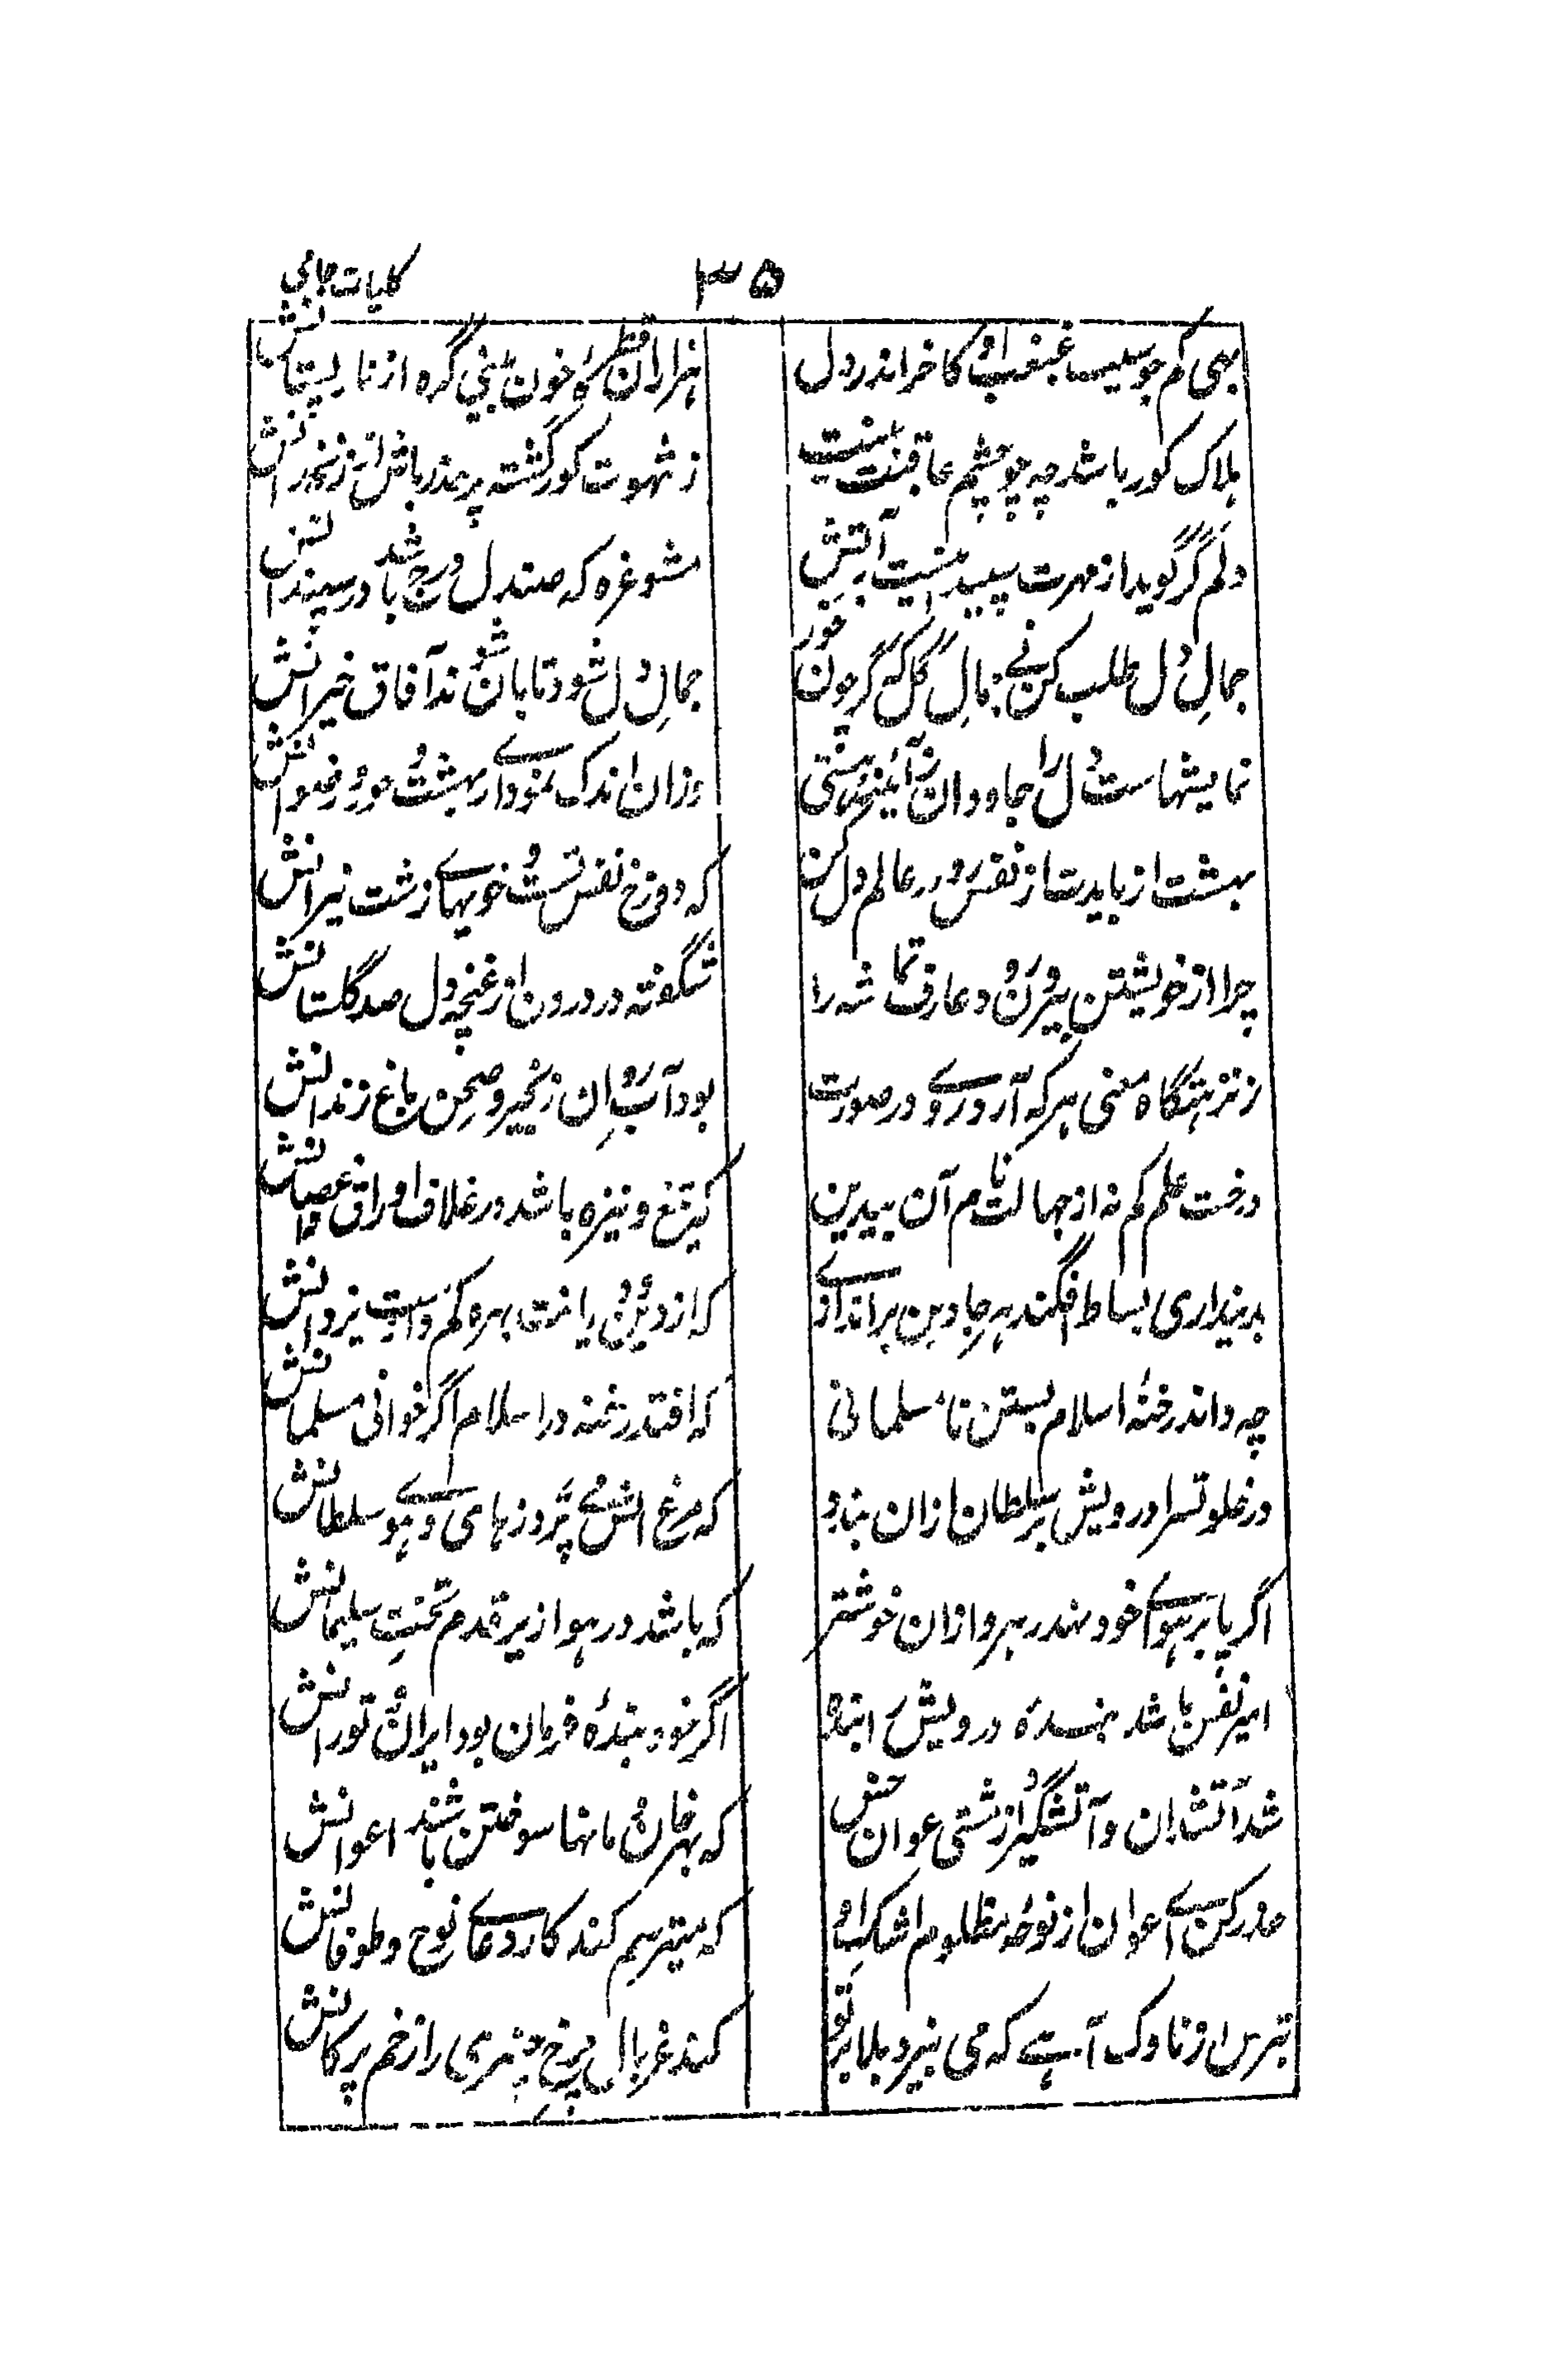 ۳۵
کلیات جامی
بهی کم جو سیب غبغب او کاخر اندر دل هزاران قطرهٔ خون بینی گره از نار پستانش
هلاک کور باشد چه چو چشم عاقبت بینت ز شهوت کور گشته پر حذر باش از زنخدانش
دلم گر گوید از مهرت سپید نیست بر آتش مشو غره که صندل درج باشد در سپندانش
جمال دل طلب کن نے جمال گل که گر چون خور جمال دل شود تابان شوند آفاق خیرانش
نمایشهاست دل را جاودان ز آئینهٔ هستی وزان اندک نمودارے بهشت و حور و رضوانش
بهشت ار بایدت از نفس رو در عالم دل کن که دوزخ نفس تست و خویهاے زشت نیرانش
چرا از خویشتن بیرون رود عارف تماشه را شگفته در درون از غنچه دل صد گلستانش
ز نزهتگاه معنی هر که آرد روے در صورت بود آب روان زنجیر و صحن باغ زندانش
درخت علم کم نه از جهالت نام آن بیدین که تیغ و نیزه باشد در غلاف اوراق و اغصانش
بدینداری بساط افگند هر جا دین براندازے که از دین دون را نت بهره کم دادست یزدانش
چه داند رخنهٔ اسلام بستن نامسلمانی که افتد رخنه در اسلام اگر خوانی مسلمانش
در خلوتسرا درویش بر سلطان ازان بندد که مرغ انس مے پرد ز هاے و هوے سلطانش
اگر پا بر هواے خود نهد رهرو ازان خوشتر که باشد در هوا زیر قدم تخت سلیمانش
اسیر نفس باشد بندهٔ درویش ابنده اگر خود بندهٔ فرمان بود ایران و تورانش
شد آتشدان و آتشگیر از زشتی عوان حنش که بهر خان و مانها سوختن باشند اعوانش
حذر کن اے اعوان از نوحهٔ مظلوم و اشک او که میترسم کند کار دعاے نوح و طوفانش
بترس از ناوک آهے که می بیزد بلا بر تو کند غربال چرخ چنبری را زخم پیکانش